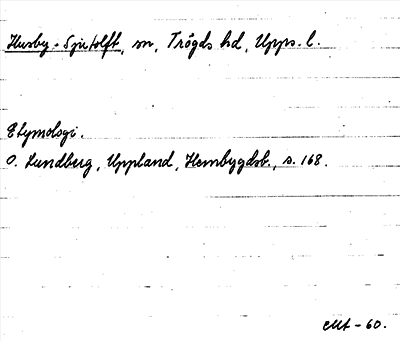 Husby-Sjutolft, sn, Trögds hd, Upps. l.
Etymologi.
O. Lundberg, Uppland, Hembygdsb., s. 168.
- 60.